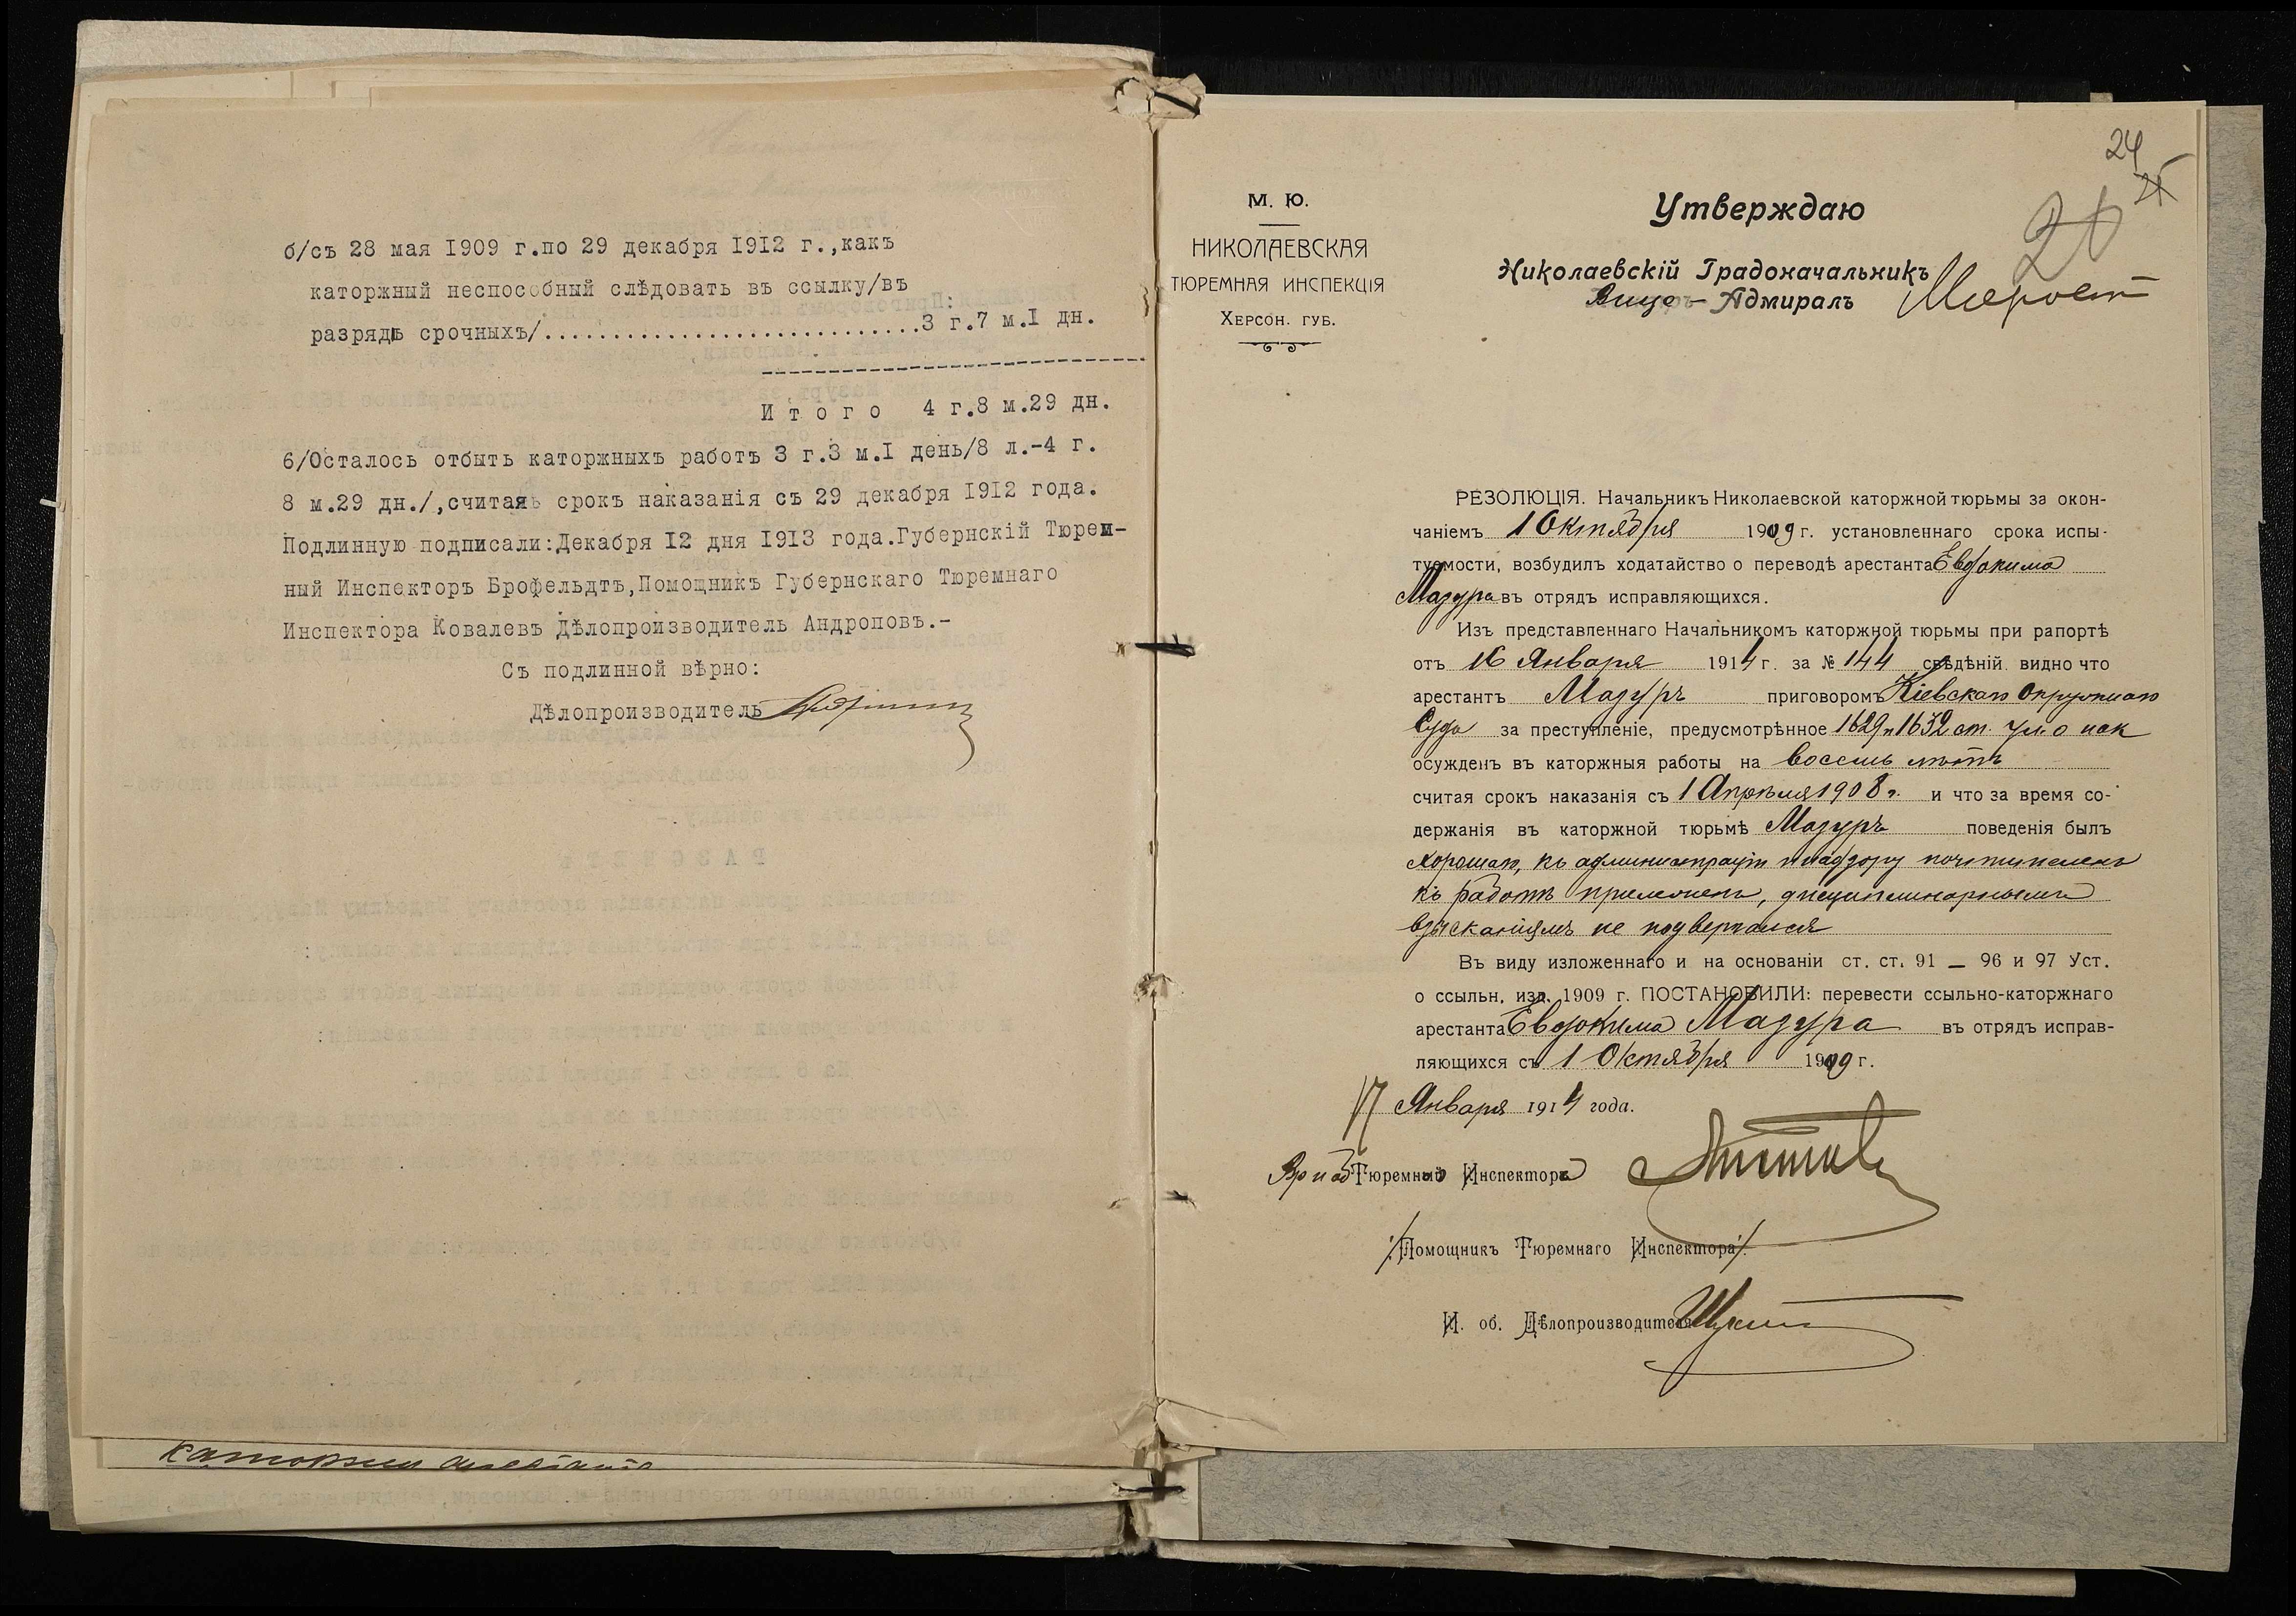 б/съ 28 мая 1909 г.по 29 декабря 1912 г.,какъ
каторжный неспособный слѣдовать въ ссылку/въ
разрядѣ срочныхъ/.............................3 г.7 м.I дн.
Итого 4 г.8 м.29 дн.
6/Осталось отбыть каторжныхъ работъ 3 г.3 м.I день/8 л.-4 г.
8 м.29 дн./,считая срокъ наказанія съ 29 декабря 1912 года.
Подлинную подписали:Декабря 12 дня 1913 года.Губернскій Тюрем-
ный Инспекторъ Брофельдтъ,Помощникъ Губернскаго Тюремнаго
Инспектора Ковалевъ Дѣлопроизводитель Андроповъ.-
Съ подлинной вѣрно:
Дѣлопроизводитель
каторжн
24
М. Ю.
НИКОЛАЕВСКАЯ
ТЮРЕМНАЯ ИНСПЕКЦІЯ
ХЕРСОН. ГУБ.
Утверждаю
Николаевскій Градоначальникъ
Вице-Адмиралъ
РЕЗОЛЮЦІЯ. Начальникъ Николаевской каторжной тюрьмы за окон-
чаніемъ 1 Октября 1909 г. установленнаго срока испы-
туемости, возбудилъ ходатайство о переводѣ арестанта Евдокима
Мазура въ отрядъ исправляющихся.
Изъ представленнаго Начальникомъ каторжной тюрьмы при рапортѣ
отъ 16 Января 1914 г. за № 144 свѣдѣній видно что
арестантъ Мазуръ приговоромъ Кіевскаго Окружнаго
Суда за преступленіе, предусмотрѣнное 1629 и 1632 ст. улож. о нак
осужденъ въ каторжныя работы на восемь лѣтъ
считая срокъ наказанія съ 1 Апрѣля 1908 г. и что за время со-
держанія въ каторжной тюрьмѣ Мазуръ поведенія былъ
хорошаго, къ администраціи и надзору почтителенъ
къ работѣ прилеженъ, дисциплинарнымъ
взысканіямъ не подвергался
Въ виду изложеннаго и на основаніи ст. ст. 91 — 96 и 97 Уст.
о ссыльн. изд. 1909 г. ПОСТАНОВИЛИ: перевести ссыльно-каторжнаго
арестанта Евдокима Мазура въ отрядъ исправ-
ляющихся съ 1 Октября 1909 г.
17 Января 1914 года.
Тюремнаго Инспектора
/Помощникъ Тюремнаго Инспектора/.
И. об. Дѣлопроизводителя